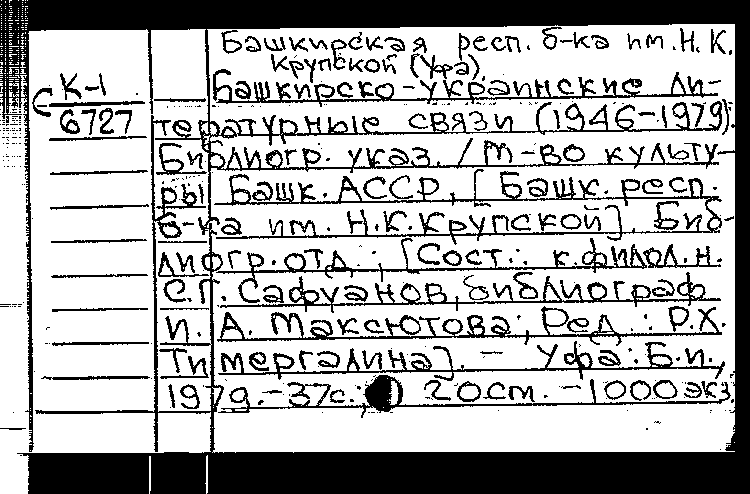 Башкирская респ. б-ка им. Н. К.
Крупской (Уфа).
К-1
6727
Башкирско-украинские ли-
тературные связи (1946-1979):
Библиогр. указ. / М-во культу-
ры Башк. АССР, [Башк. респ.
б-ка им. Н.К. Крупской]. Биб-
лиогр. отд.; [Сост.: к. филол. н.
С.Г. Сафуанов, библиограф
И. А. Максютова; Ред.: Р.Х.
Тимергалина]. - Уфа: Б.и.,
1979. - 37с.; 20см. - 1000 экз.